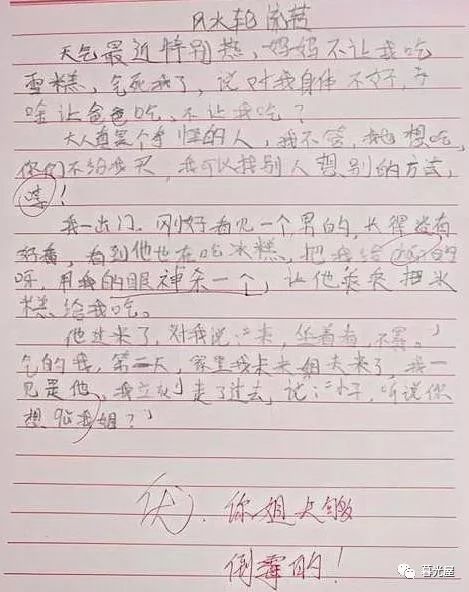 风水轮流转
天气最近特别热,妈妈不让我吃
雪糕,气死我了,说对我身体不好,为
啥让爸爸吃,不让我吃?
大人真是个奇怪的人,我不管,我想吃,
你们不给我买,我可以找别人想别的方法,
哼!
我一出门,刚好看见一个男的,长得没有
我看,看到他也在吃冰糕,把我给
呀,用我的眼神杀一个,让他乖乖把冰
糕给我吃。
他过来了,对我说:“来,坐着看,不买。”
气的我,第二天,家里我未来姐夫来了,我一
见是他,我立刻走了过去,说:“小子,听说你
想 我姐?”
优),你姐夫够
倒霉的!
暮光屋